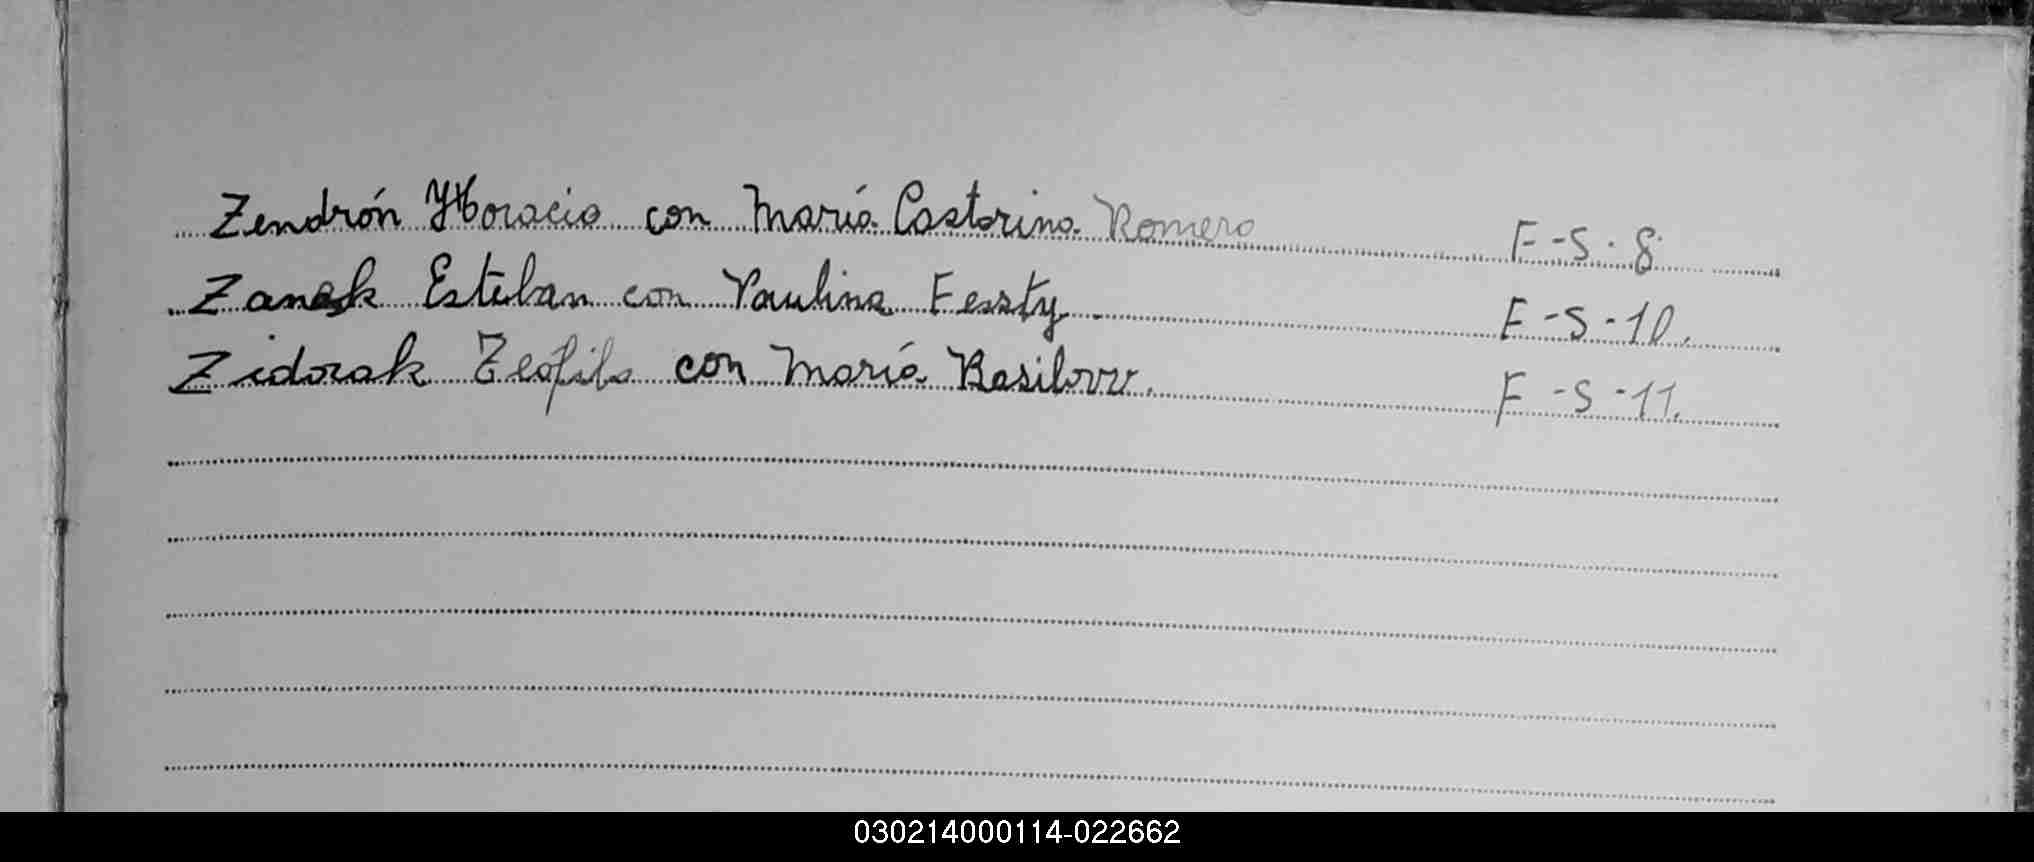 Zendrón Horacio con María Castorina Romero F-S-8
Zanek Esteban con Paulina Feszty F-S-10.
Zidorak Teófilo con María Basilovv. F-S-11.
030214000114-022662